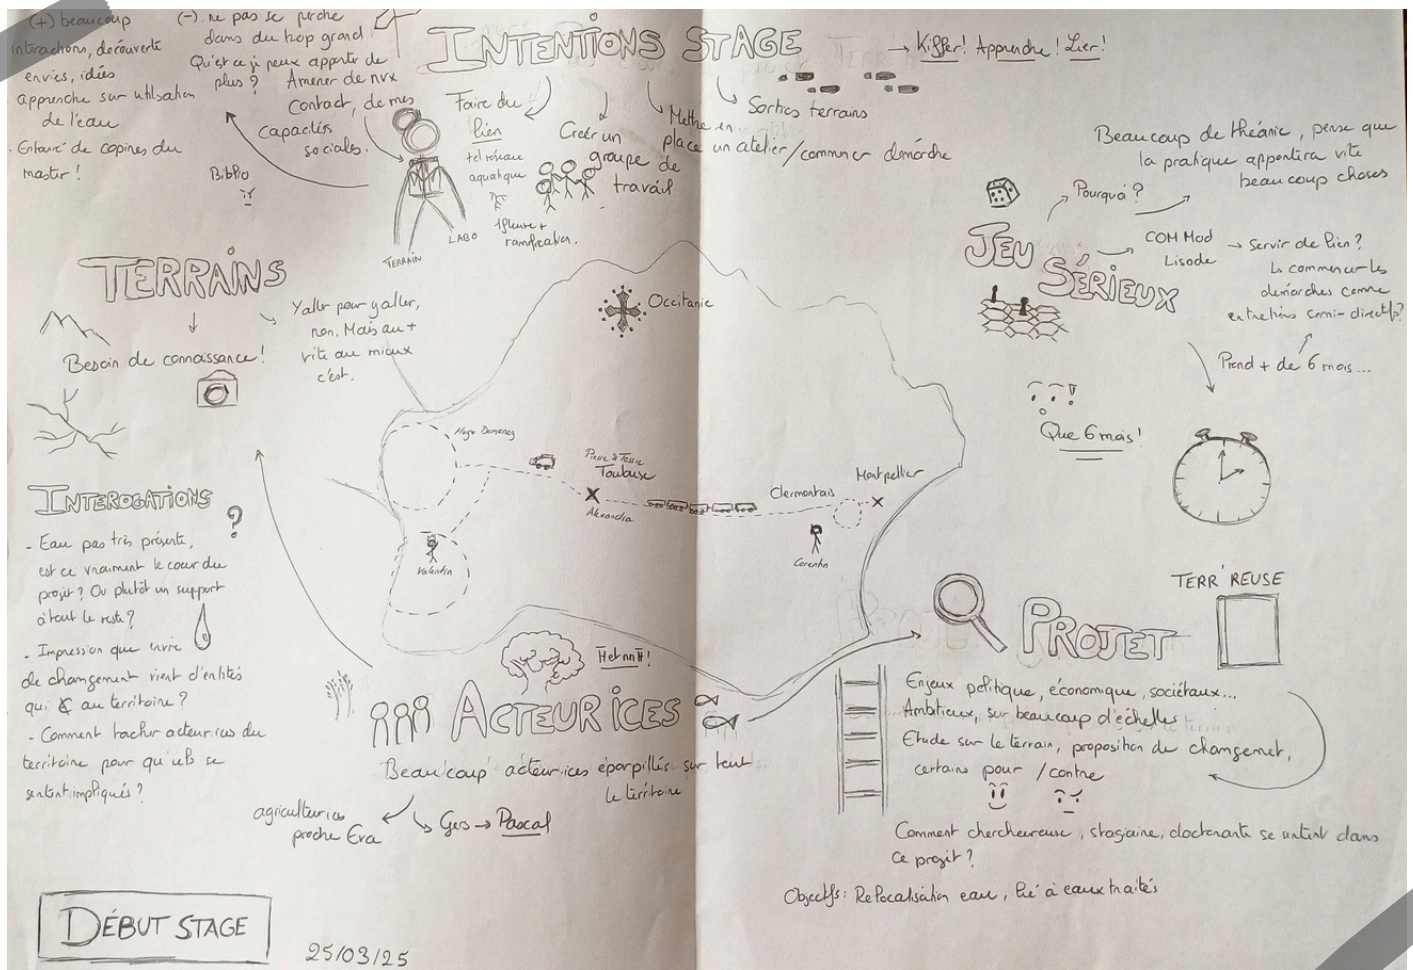 (+) beaucoup
intéractions, découverte
envies, idées
apprendre sur utilisation
de l'eau
. Entouré de copines du
master !
(-). ne pas se perdre
dans du trop grand
Qu'est ce j peux apporter de
plus ?
Amener de nvx
Contact, de mes
Capacités
sociales.
Biblio
INTENTIONS STAGE
→ Kiffer! Apprendre! Lier!
Faire du
lien
tel réseau
aquatique
1 fleuve +
ramification.
Créer un
groupe de
travail
Mettre en
place un atelier/commencer démarche
Sorties terrains
TERRAIN
LABO
Beaucoup de théorie, pense que
la pratique apportera vite
beaucoup choses
Pourquoi ?
JEU
SÉRIEUX
COM Mod
Lisode
→ Servir de lien ?
↳ commencer les
démarches comme
entretiens semi-directifs?
Prend + de 6 mois...
Que 6 mois!
TERRAINS
Besoin de connaissance!
Y aller pour y aller,
non. Mais au +
vite au mieux
c'est.
Occitanie
Hugo Domenes
Pierre & Terre
Toulouse
Alexandra
Clermontais
Montpellier
Corentin
Valentin
INTEROGATIONS
?
- Eau pas très présente,
est ce vraiment le cœur du
projet ? Ou plutôt un support
à tout le reste ?
. Impression que envie
de changement vient d'entités
qui au territoire ?
- Comment toucher acteur.ices du
territoire pour qu'iels se
sentent impliqués ?
ACTEUR ICES
Beaucoup acteur.ices éparpillés sur tout
le territoire
agriculteur.ices
proche Eva
Gers → Pascal
TERR'REUSE
PROJET
Enjeux politique, économique, sociétaux...
Ambitieux, sur beaucoup d'échelles
Etude sur le terrain, proposition de changement,
certains pour / contre
Comment chercheureuse, stagiaire, doctorante se sentent dans
ce projet ?
Objectifs: Relocalisation eau, lié à eaux traités
DÉBUT STAGE
25/03/25